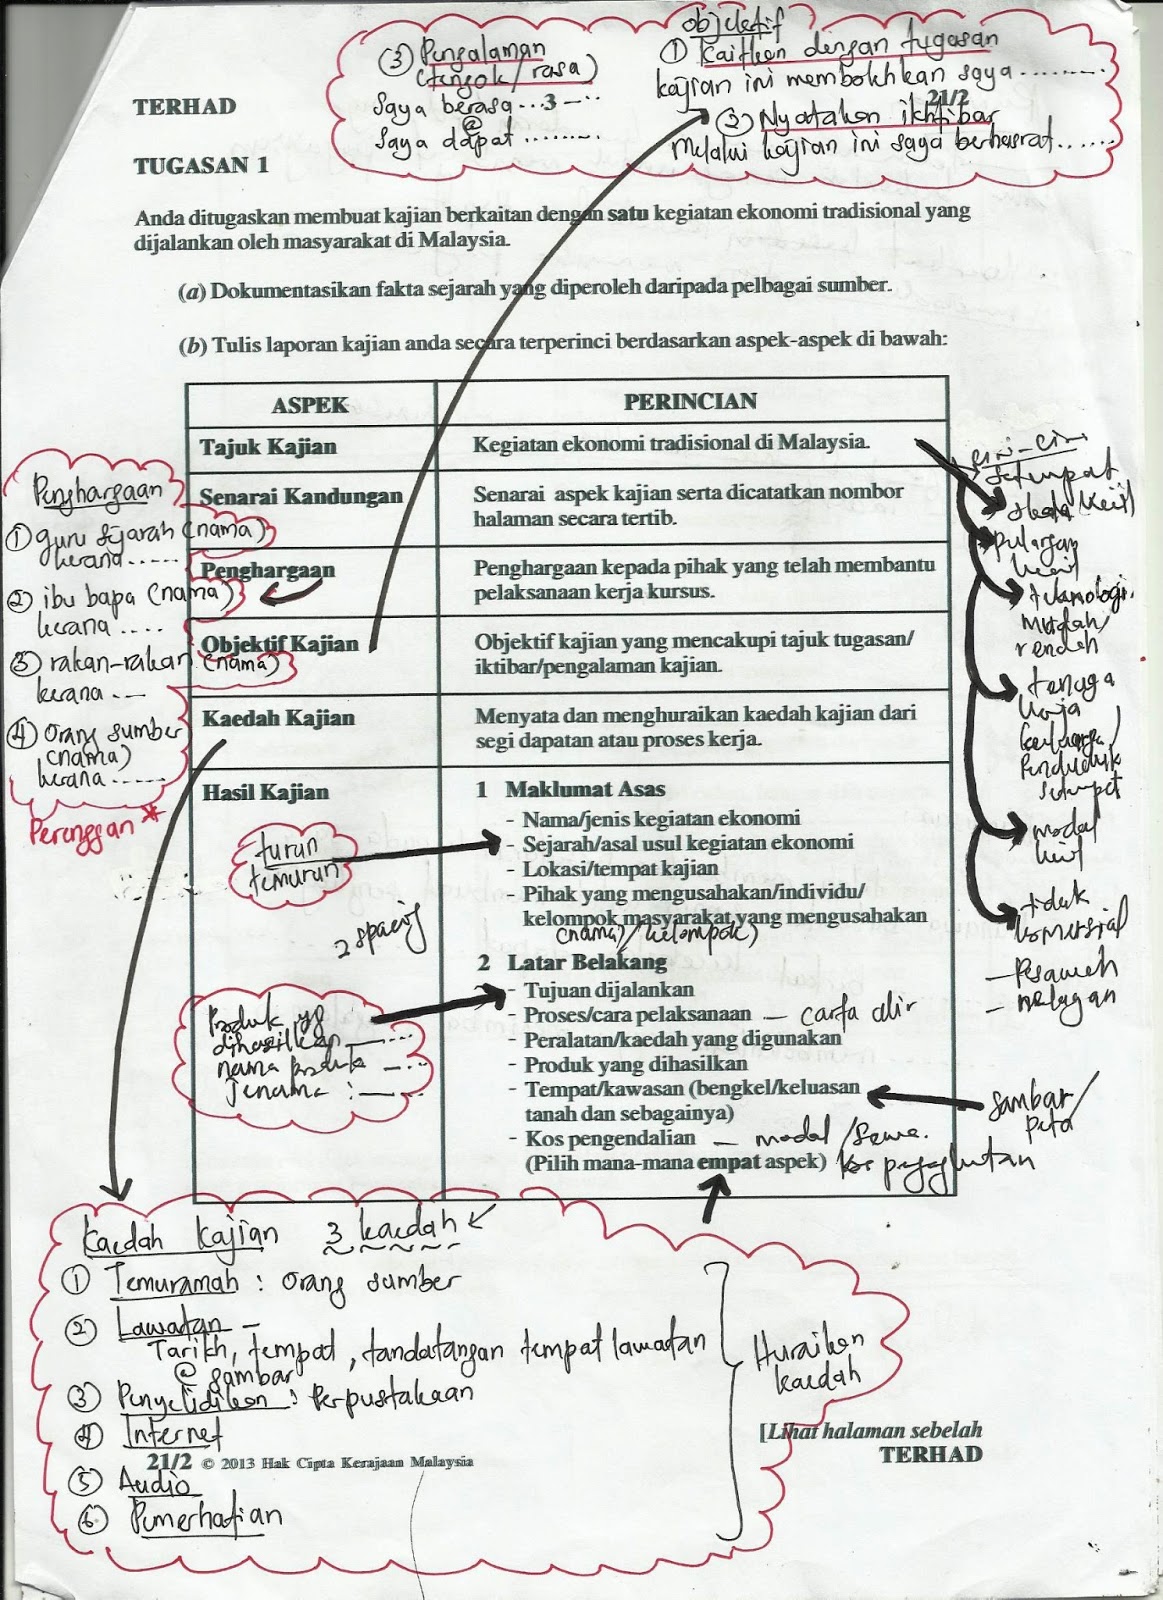 objektif
③ Pengalaman
(tengok / rasa)
Saya berasa ...3 – ..
@
Saya dapat .........
① Kaitkan dengan tugasan
kajian ini membolehkan saya ..........
② Nyatakan ikhtibar
Melalui kajian ini saya berhasrat ......
TERHAD
21/2
TUGASAN 1
Anda ditugaskan membuat kajian berkaitan dengan satu kegiatan ekonomi tradisional yang
dijalankan oleh masyarakat di Malaysia.
(a) Dokumentasikan fakta sejarah yang diperoleh daripada pelbagai sumber.
(b) Tulis laporan kajian anda secara terperinci berdasarkan aspek-aspek di bawah:
ASPEK
PERINCIAN
Tajuk Kajian
Kegiatan ekonomi tradisional di Malaysia.
Senarai Kandungan
Senarai aspek kajian serta dicatatkan nombor
halaman secara tertib.
Penghargaan
Penghargaan kepada pihak yang telah membantu
pelaksanaan kerja kursus.
Objektif Kajian
Objektif kajian yang mencakupi tajuk tugasan/
iktibar/pengalaman kajian.
Kaedah Kajian
Menyata dan menghuraikan kaedah kajian dari
segi dapatan atau proses kerja.
Hasil Kajian
1 Maklumat Asas
- Nama/jenis kegiatan ekonomi
- Sejarah/asal usul kegiatan ekonomi
- Lokasi/tempat kajian
- Pihak yang mengusahakan/individu/
kelompok masyarakat yang mengusahakan
(nama) / kelompok)
2 Latar Belakang
- Tujuan dijalankan
- Proses/cara pelaksanaan – carta alir
- Peralatan/kaedah yang digunakan
- Produk yang dihasilkan
- Tempat/kawasan (bengkel/keluasan
tanah dan sebagainya)
- Kos pengendalian – modal / sewa.
(Pilih mana-mana empat aspek)
Penghargaan
① guru sejarah (nama)
kerana .....
② ibu bapa (nama)
kerana ....
③ rakan-rakan (nama)
kerana .. –
④ Orang sumber
(nama)
kerana .......
Perenggan *
turun
temurun
2 spacing
Produk yg
dihasilkan – ...
nama produk – ..
Jenama : – ..
Ciri-ciri
Setempat
skala kecil
teknologi
mudah/
rendah
tenaga
kerja
keluarga /
Penduduk
setempat
modal
kecil
tidak
komersial
– Pesawah
– nelayan
gambar/
peta
Kaedah Kajian 3 kaedah
① Temuramah : Orang sumber
② Lawatan –
Tarikh, tempat, tandatangan tempat lawatan
@ gambar
③ Penyelidikan : Perpustakaan
④ Internet
⑤ Audio
⑥ Pemerhatian
Huraikan
kaedah
[Lihat halaman sebelah
TERHAD
21/2 © 2013 Hak Cipta Kerajaan Malaysia